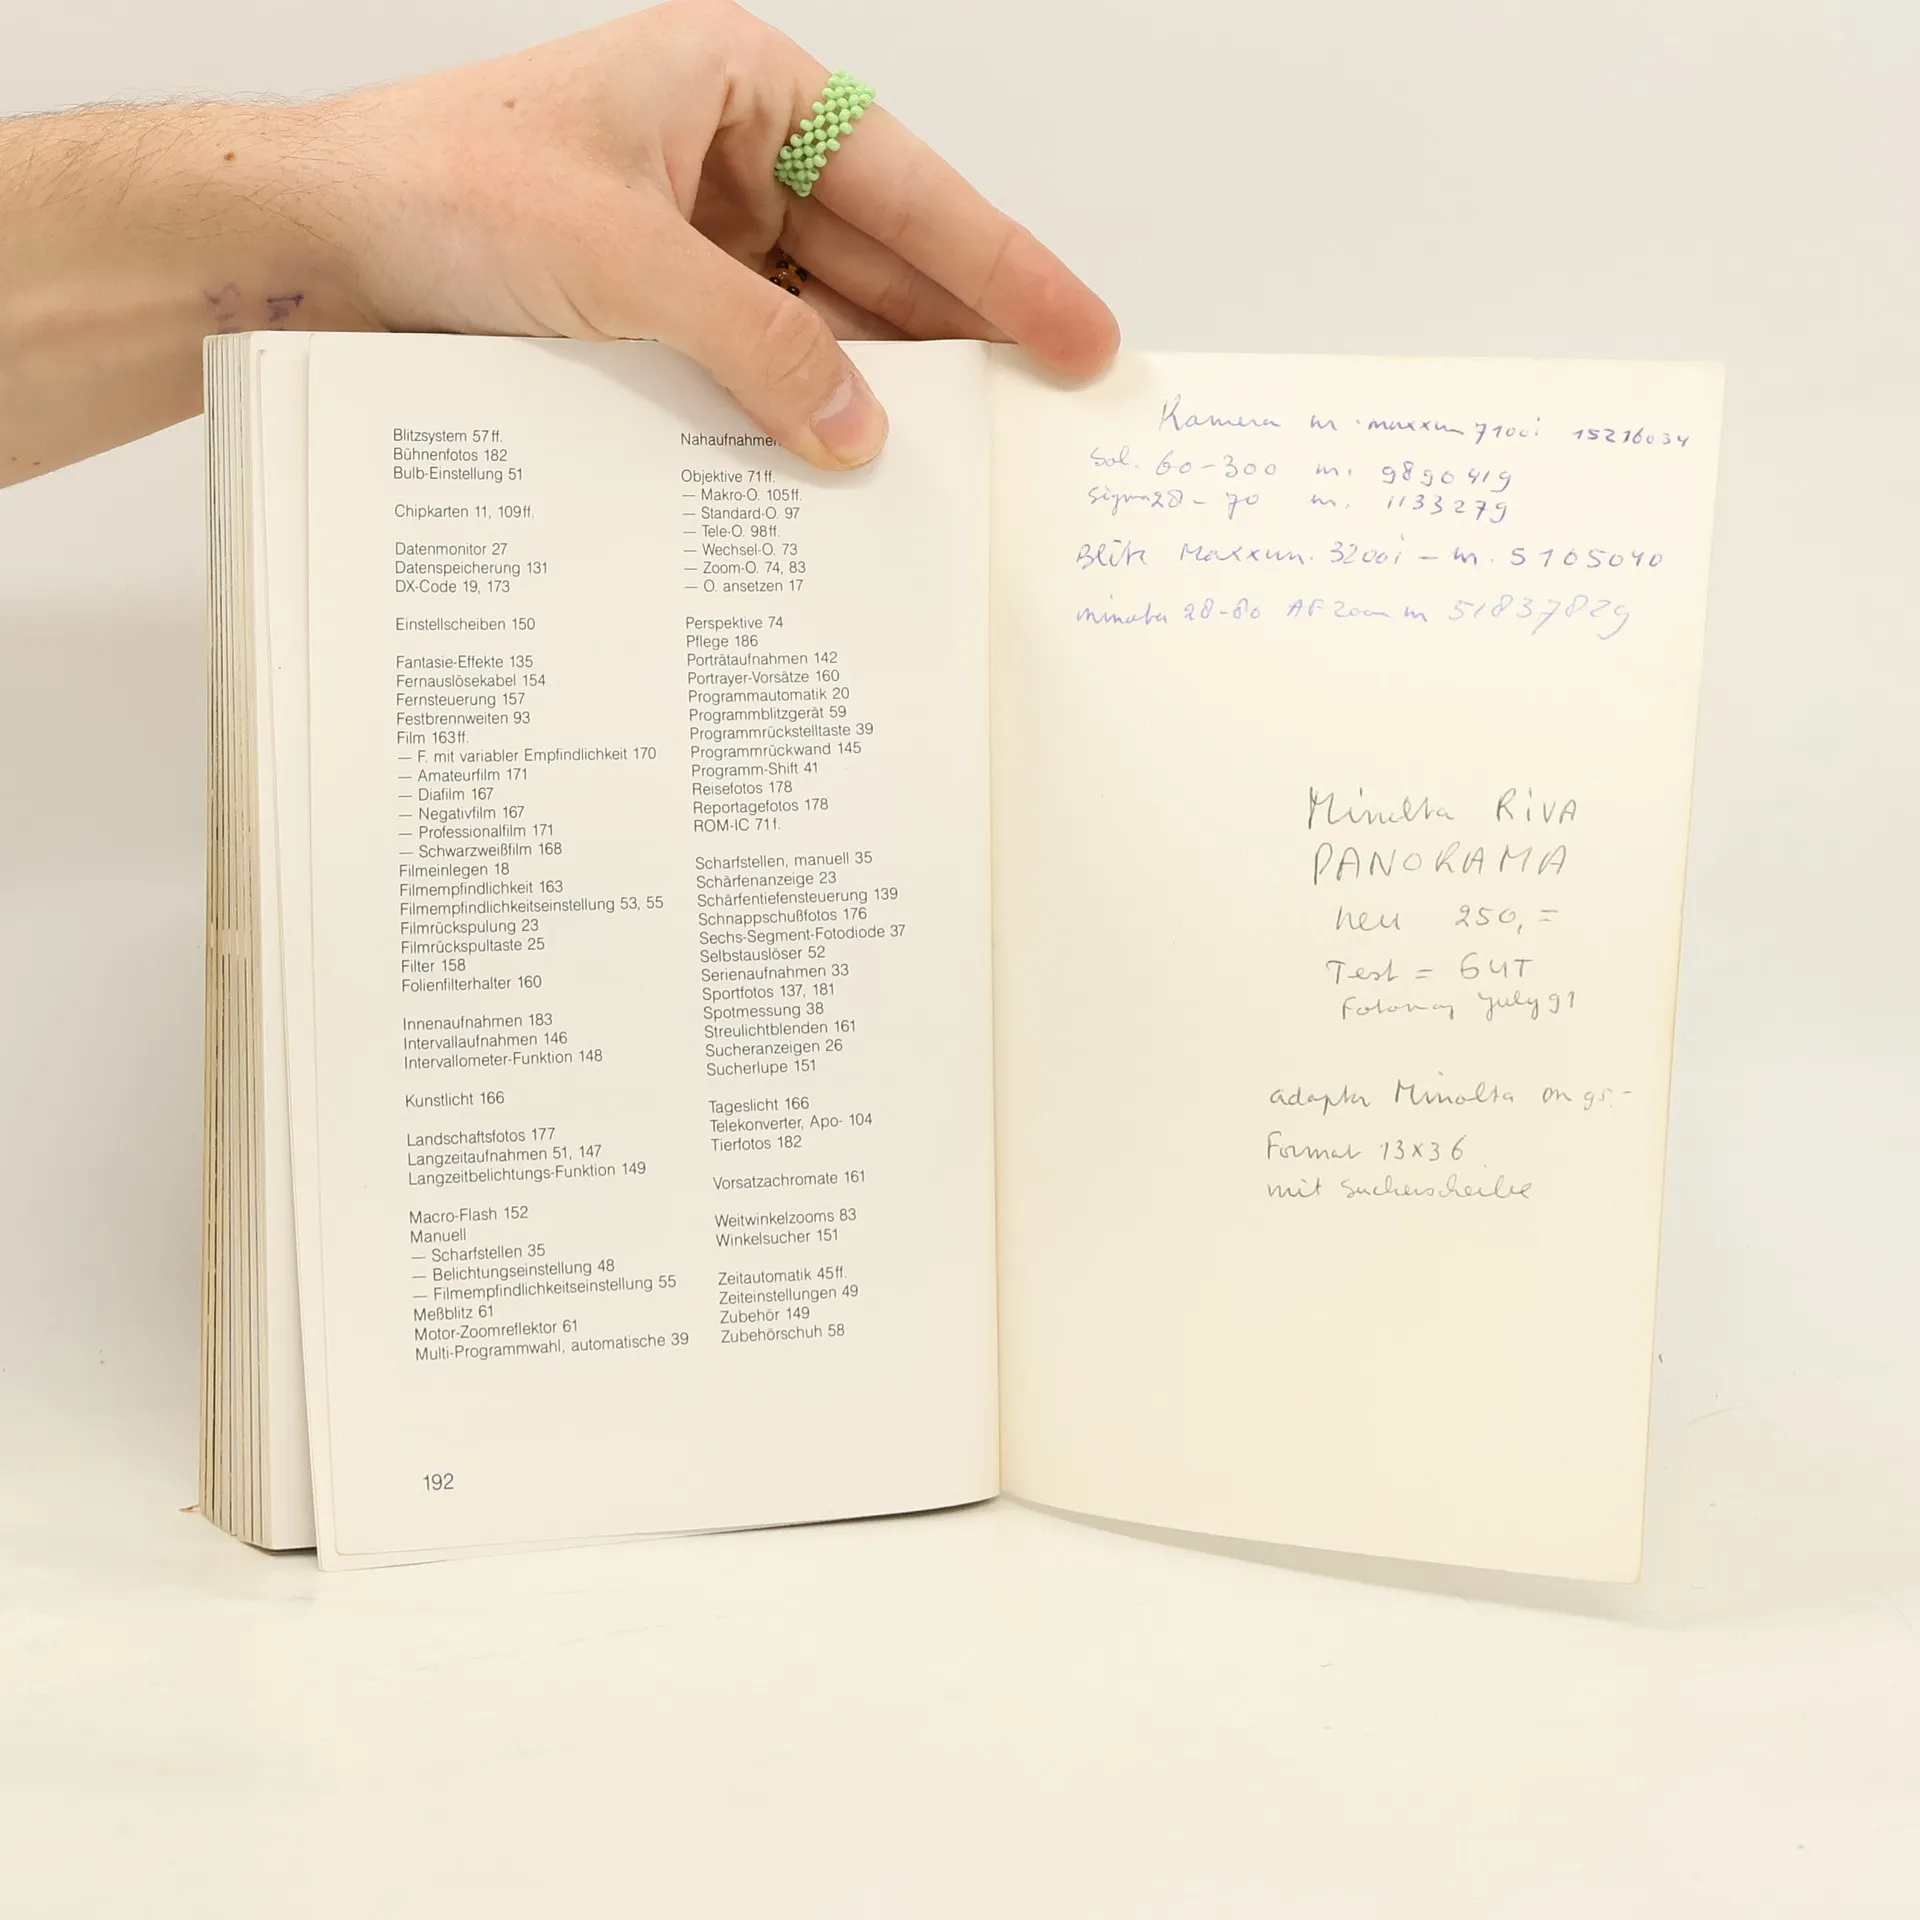 Blitzsystem 57ff.
Bühnenfotos 182
Bulb-Einstellung 51
Chipkarten 11, 109ff.
Datenmonitor 27
Datenspeicherung 131
DX-Code 19, 173
Einstellscheiben 150
Fantasie-Effekte 135
Fernauslösekabel 154
Fernsteuerung 157
Festbrennweiten 93
Film 163ff.
— F. mit variabler Empfindlichkeit 170
— Amateurfilm 171
— Diafilm 167
— Negativfilm 167
— Professionalfilm 171
— Schwarzweißfilm 168
Filmeinlegen 18
Filmempfindlichkeit 163
Filmempfindlichkeitseinstellung 53, 55
Filmrückspulung 23
Filmrückspultaste 25
Filter 158
Folienfilterhalter 160
Innenaufnahmen 183
Intervallaufnahmen 146
Intervallometer-Funktion 148
Kunstlicht 166
Landschaftsfotos 177
Langzeitaufnahmen 51, 147
Langzeitbelichtungs-Funktion 149
Macro-Flash 152
Manuell
— Scharfstellen 35
— Belichtungseinstellung 48
— Filmempfindlichkeitseinstellung 55
Meßblitz 61
Motor-Zoomreflektor 61
Multi-Programmwahl, automatische 39
192
Nahaufnahmen
Objektive 71ff.
— Makro-O. 105ff.
— Standard-O. 97
— Tele-O. 98ff.
— Wechsel-O. 73
— Zoom-O. 74, 83
— O. ansetzen 17
Perspektive 74
Pflege 186
Porträtaufnahmen 142
Portrayer-Vorsätze 160
Programmautomatik 20
Programmblitzgerät 59
Programmrückstelltaste 39
Programmrückwand 145
Programm-Shift 41
Reisefotos 178
Reportagefotos 178
ROM-IC 71f.
Scharfstellen, manuell 35
Schärfenanzeige 23
Schärfentiefensteuerung 139
Schnappschußfotos 176
Sechs-Segment-Fotodiode 37
Selbstauslöser 52
Serienaufnahmen 33
Sportfotos 137, 181
Spotmessung 38
Streulichtblenden 161
Sucheranzeigen 26
Sucherlupe 151
Tageslicht 166
Telekonverter, Apo- 104
Tierfotos 182
Vorsatzachromate 161
Weitwinkelzooms 83
Winkelsucher 151
Zeitautomatik 45ff.
Zeiteinstellungen 49
Zubehör 149
Zubehörschuh 58
Kamera nr. maxxum 7100i 15216034
60-300 nr. 9890419
Sigma 28-70 nr. 1133279
Blitz Maxxum. 3200i - nr. 5105040
minolta 28-80 AF Zoom nr 51837829
Minolta RiVA
PANORAMA
neu 250,=
Test = GUT
Fotomag July 91
adapter Minolta 95.-
Format 13x36
mit Sucherscheibe